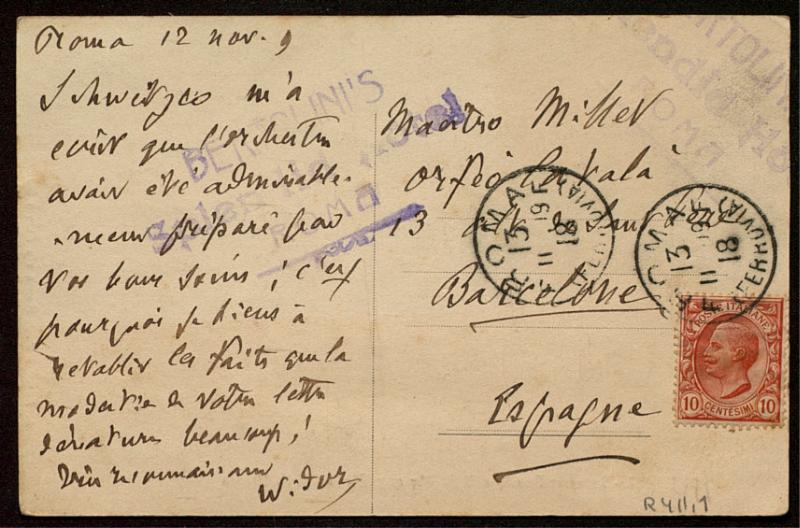 Roma 12 nov. 9
Schweitzer m'a
écrit que l'orchestre
avait été admirable-
-ment préparé par
vos bons soins ; c'est
pourquoi je tiens à
rétablir les faits que la
modestie de votre lettre
dénature beaucoup !
Très reconnaissant
Widor
Maestro Millet
Orfeó Català
13
Barcelone
Espagne
BERTOLINI'S
Splendid Hotel
ROMA
BERTOLINI'S
Splendid Hotel
ROMA
ROMA
13 19
11 18
FERROVIA
ROMA
13
11 18
FERROVIA
POSTE ITALIANE
10 CENTESIMI 10
R411,1